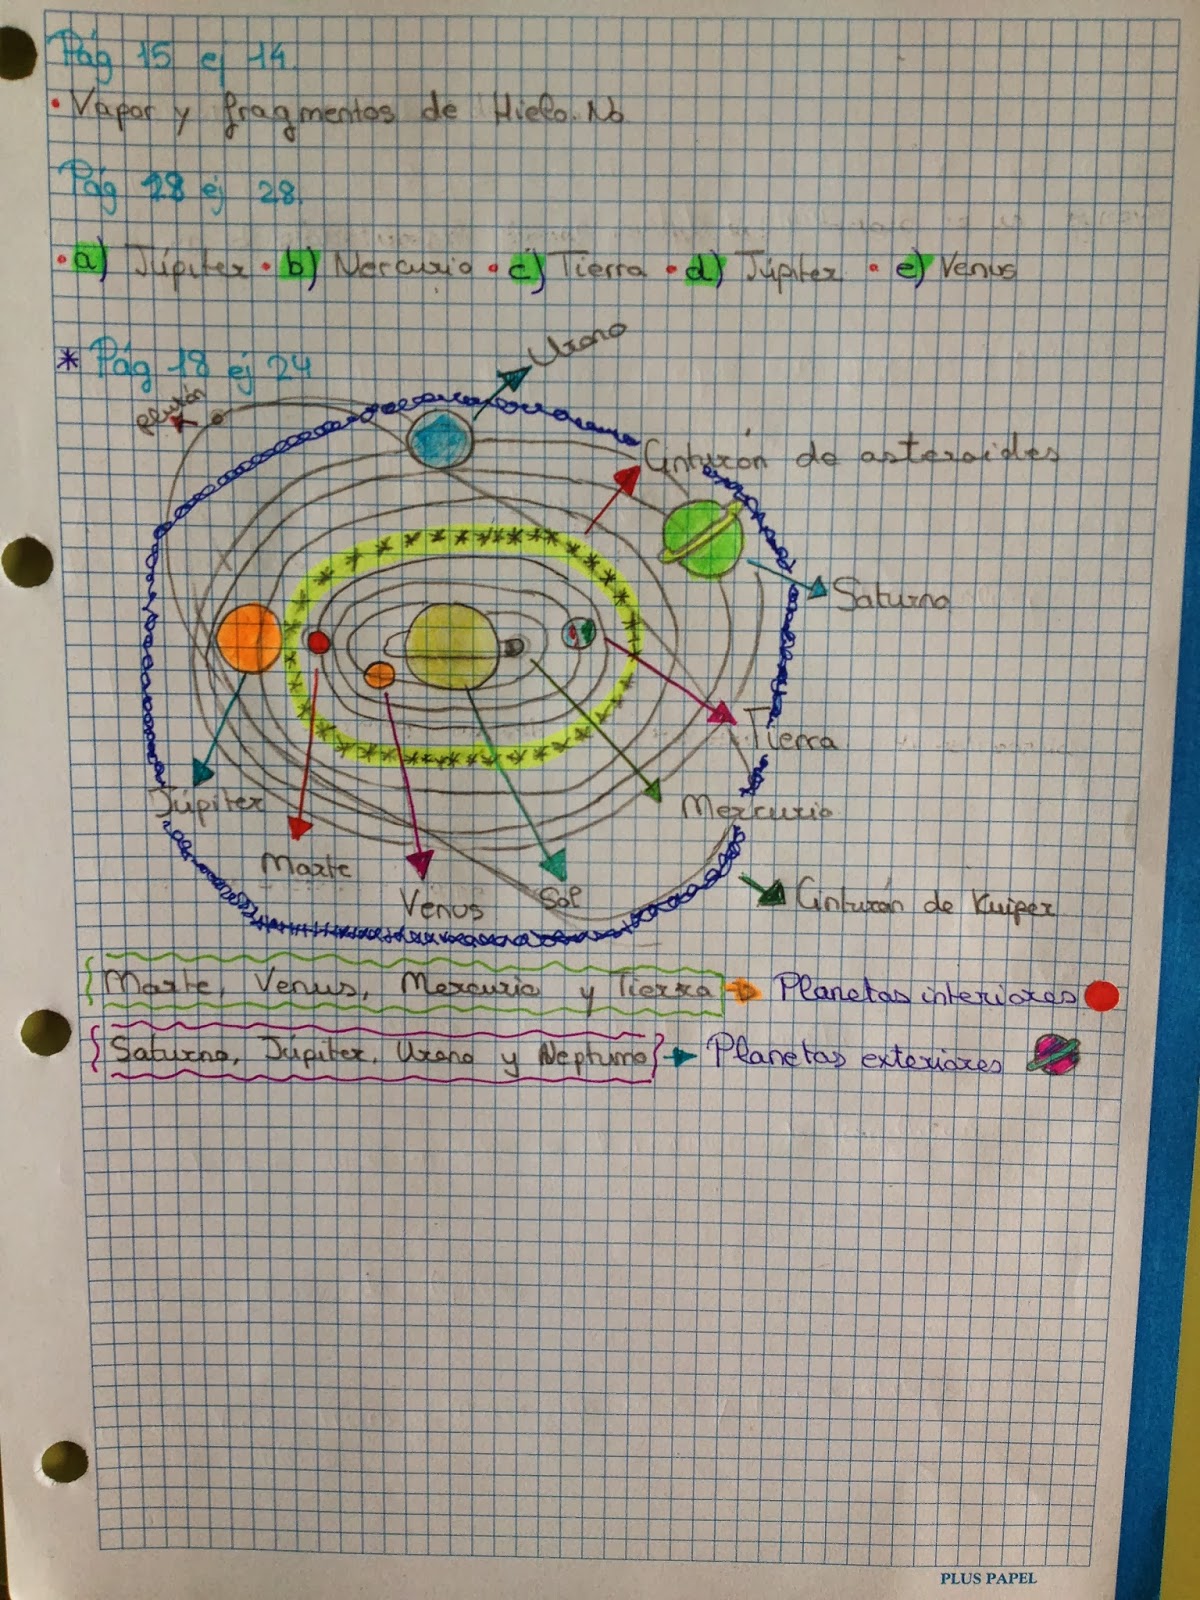 Pág 15 ej 14.
• Vapor y fragmentos de Hielo. No
Pág 28 ej 28.
• a) Júpiter • b) Mercurio • c) Tierra • d) Júpiter • e) Venus
* Pág 18 ej 24
Urano
Plutón
Cinturón de asteroides
Saturno
Tierra
Júpiter
Mercurio
Marte
Venus
Sol
Cinturón de Kuiper
Marte, Venus, Mercurio y Tierra → Planetas interiores
Saturno, Júpiter, Urano y Neptuno → Planetas exteriores
PLUS PAPEL